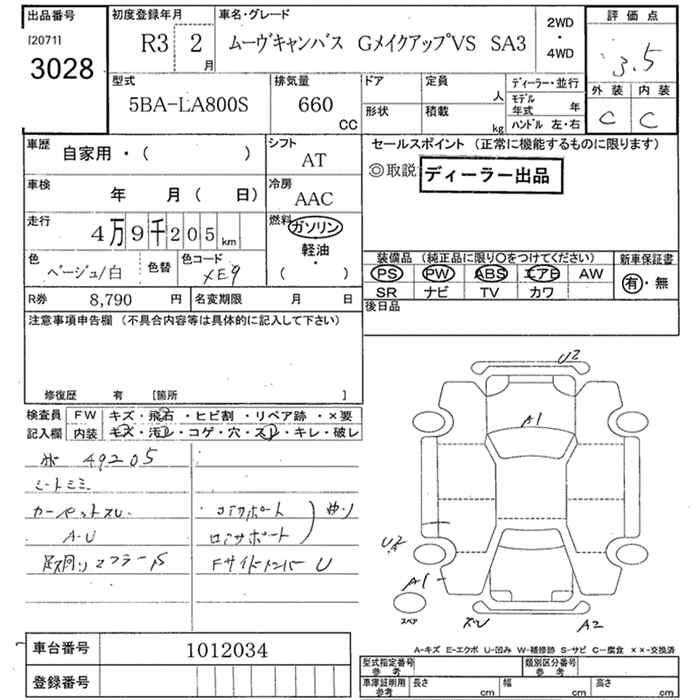 出品番号
[2071]
3028
初度登録年月
R3 2 月
車名・グレード
ムーヴキャンバス GメイクアップVS SA3
2WD
・
4WD
評価点
3.5
外装 内装
C C
型式
5BA-LA800S
排気量
660
CC
ドア
形状
定員
人
積載
kg
ディーラー・並行
モデル
年式 年
ハンドル 左・右
車歴
自家用・( )
シフト
AT
車検
年 月( 日)
冷房
AAC
走行
4万9千205km
燃料
ガソリン
軽油
( ・ )
色
ベージュ/白
色替
色コード
XE9
R券 8,790 円
名変期限 月 日
セールスポイント (正常に機能するものに限ります)
◎取説 ディーラー出品
装備品 (純正品に限り○をつけてください)
新車保証書
PS PW ABS エアB AW
SR ナビ TV カワ
有・無
後日品
注意事項申告欄 (不具合内容等は具体的に記入して下さい)
修復歴 有 [箇所 ]
検査員
記入欄
FW キズ・飛石・ヒビ割・リペア跡・×要
内装 キズ・汚コレ・コゲ・穴・スレ・キレ・破レ
49205
シートシミ
カーペットスレ
A-U
足廻りマフラーS
コアサポート
ロアサポート
曲り
FサイドメンバーU
U2
A1
U2
A
A1-
スペア
ズレ
A2
A-キズ E-エクボ U-凹み W-補修跡 S-サビ C-腐食 ××-交換済
車台番号 1012034
登録番号
型式指定番号
参考
類別区分番号
参考
車庫証明用
参考
長さ cm
幅 cm
高さ cm